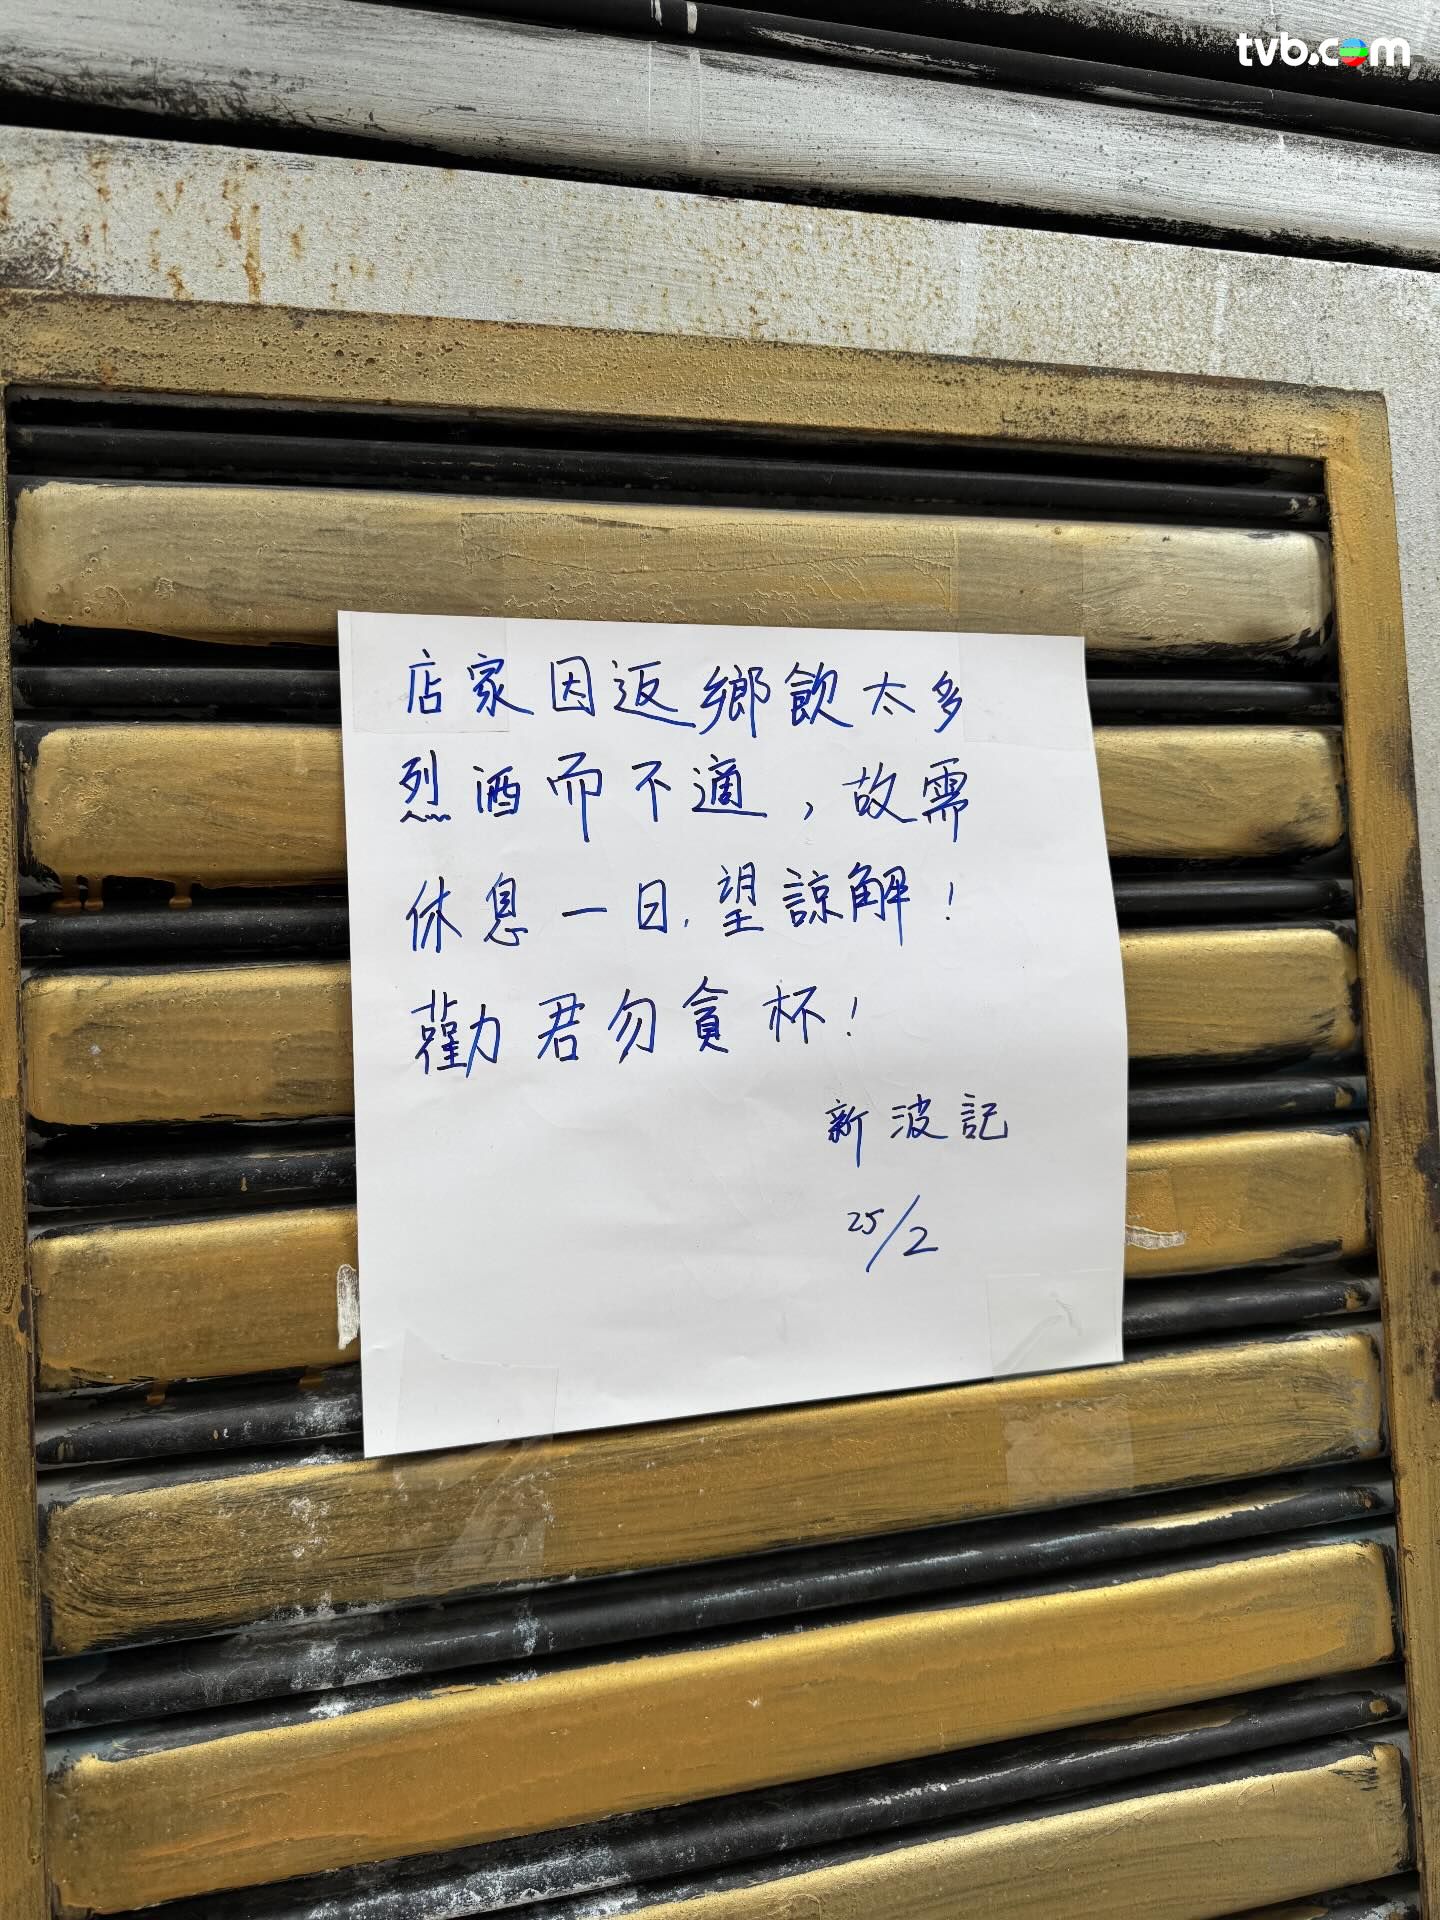 tvb.com
店家因返鄉飲太多
烈酒而不適，故需
休息一日，望諒解！
勸君勿貪杯！
新波記
25/2